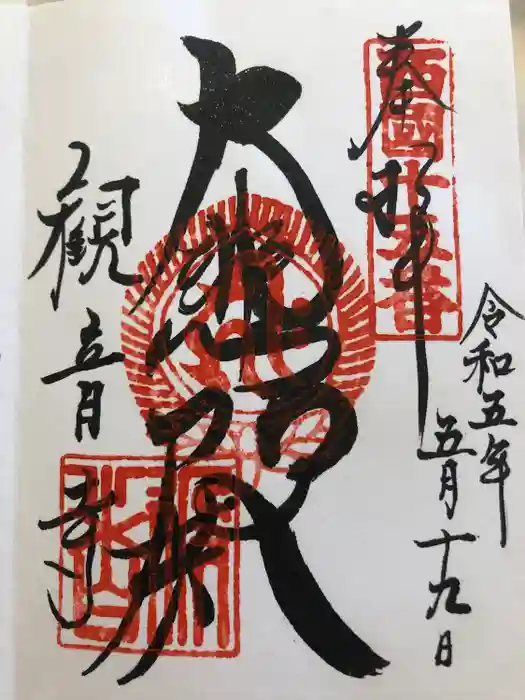 西國十五番
奉拝
令和五年
五月十九日
大悲殿
観音寺